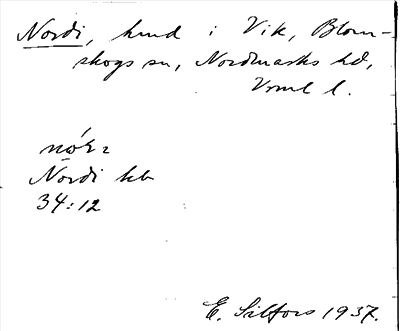 Nordi, hmd i Vik, Blom-
skogs sn, Nordmarks hd,
Vrml l.
Nordi hb
34:12
E. Silfors 1937.